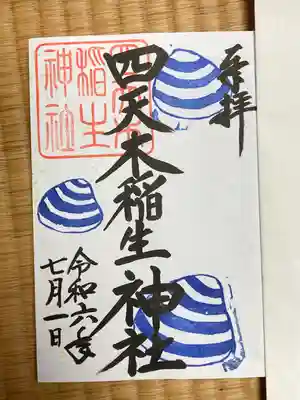 奉拝
四天木稲生神社
令和六年
七月一日
稲生
神社